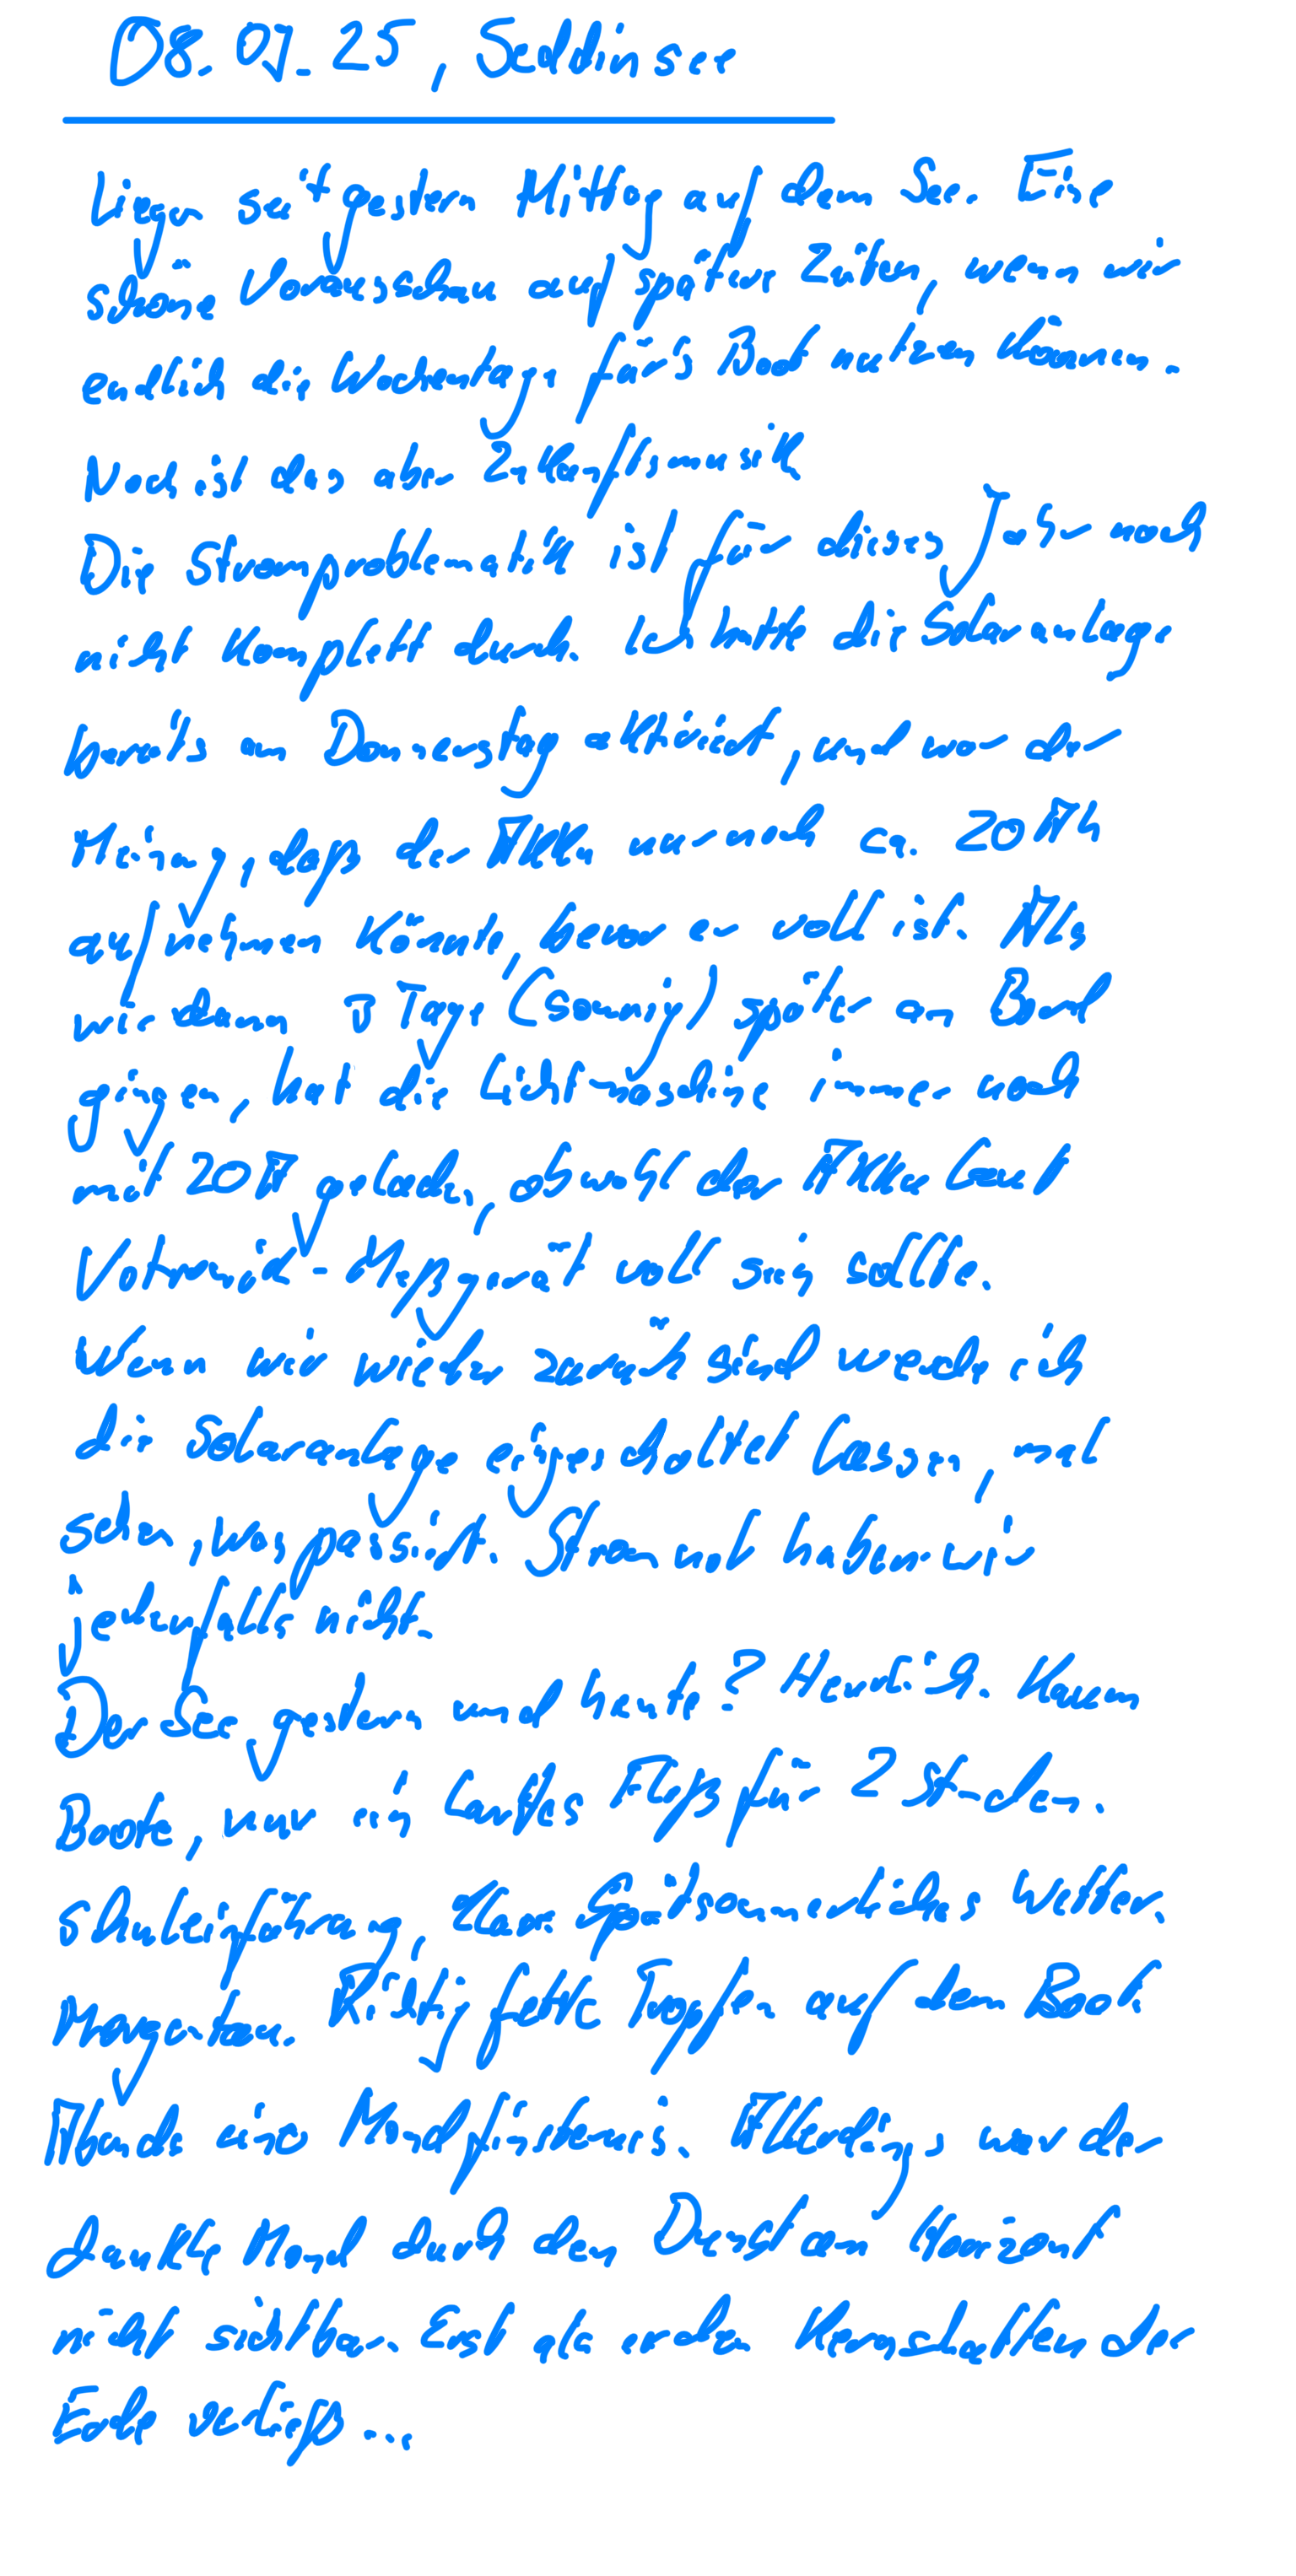 08.09.25, Seddinsee
Liegen seit gestern Mittag auf dem See. Eine
schöne Vorausschau auf spätere Zeiten, wenn wir
endlich die Wochentage für's Boot nutzen können.
Noch ist das aber Zukunftsmusik
Die Stromproblematik ist für dieses Jahr noch
nicht komplett durch. Ich hatte die Solaranlage
bereits am Donnerstag aktiviert, und war der
Meinung, daß der Akku nur noch ca. 20Ah
aufnehmen könnte, bevor er voll ist. Als
wir dann 3 Tage (sonnig) später an Bord
gingen, hat die Lichtmaschine immer noch
mit 20A geladen, obwohl der Akku laut
Votronic-Meßgerät voll sein sollte.
Wenn wir wieder zurück sind werde ich
die Solaranlage eingeschaltet lassen, mal
sehen, was passiert. Stromnot haben wir
jedenfalls nicht.
Der See gestern und heute? Herrlich. Kaum
Boote, nur ein lautes Floß für 2 Stunden.
Schuleinführung, klar. Spätsommerliches Wetter.
Morgentau. Richtig fette Tropfen auf dem Boot.
Abends eine Mondfinsternis. Allerdings war der
dunkle Mond durch den Dunst am Horizont
nicht sichtbar. Erst als er den Kernschatten der
Erde verließ...